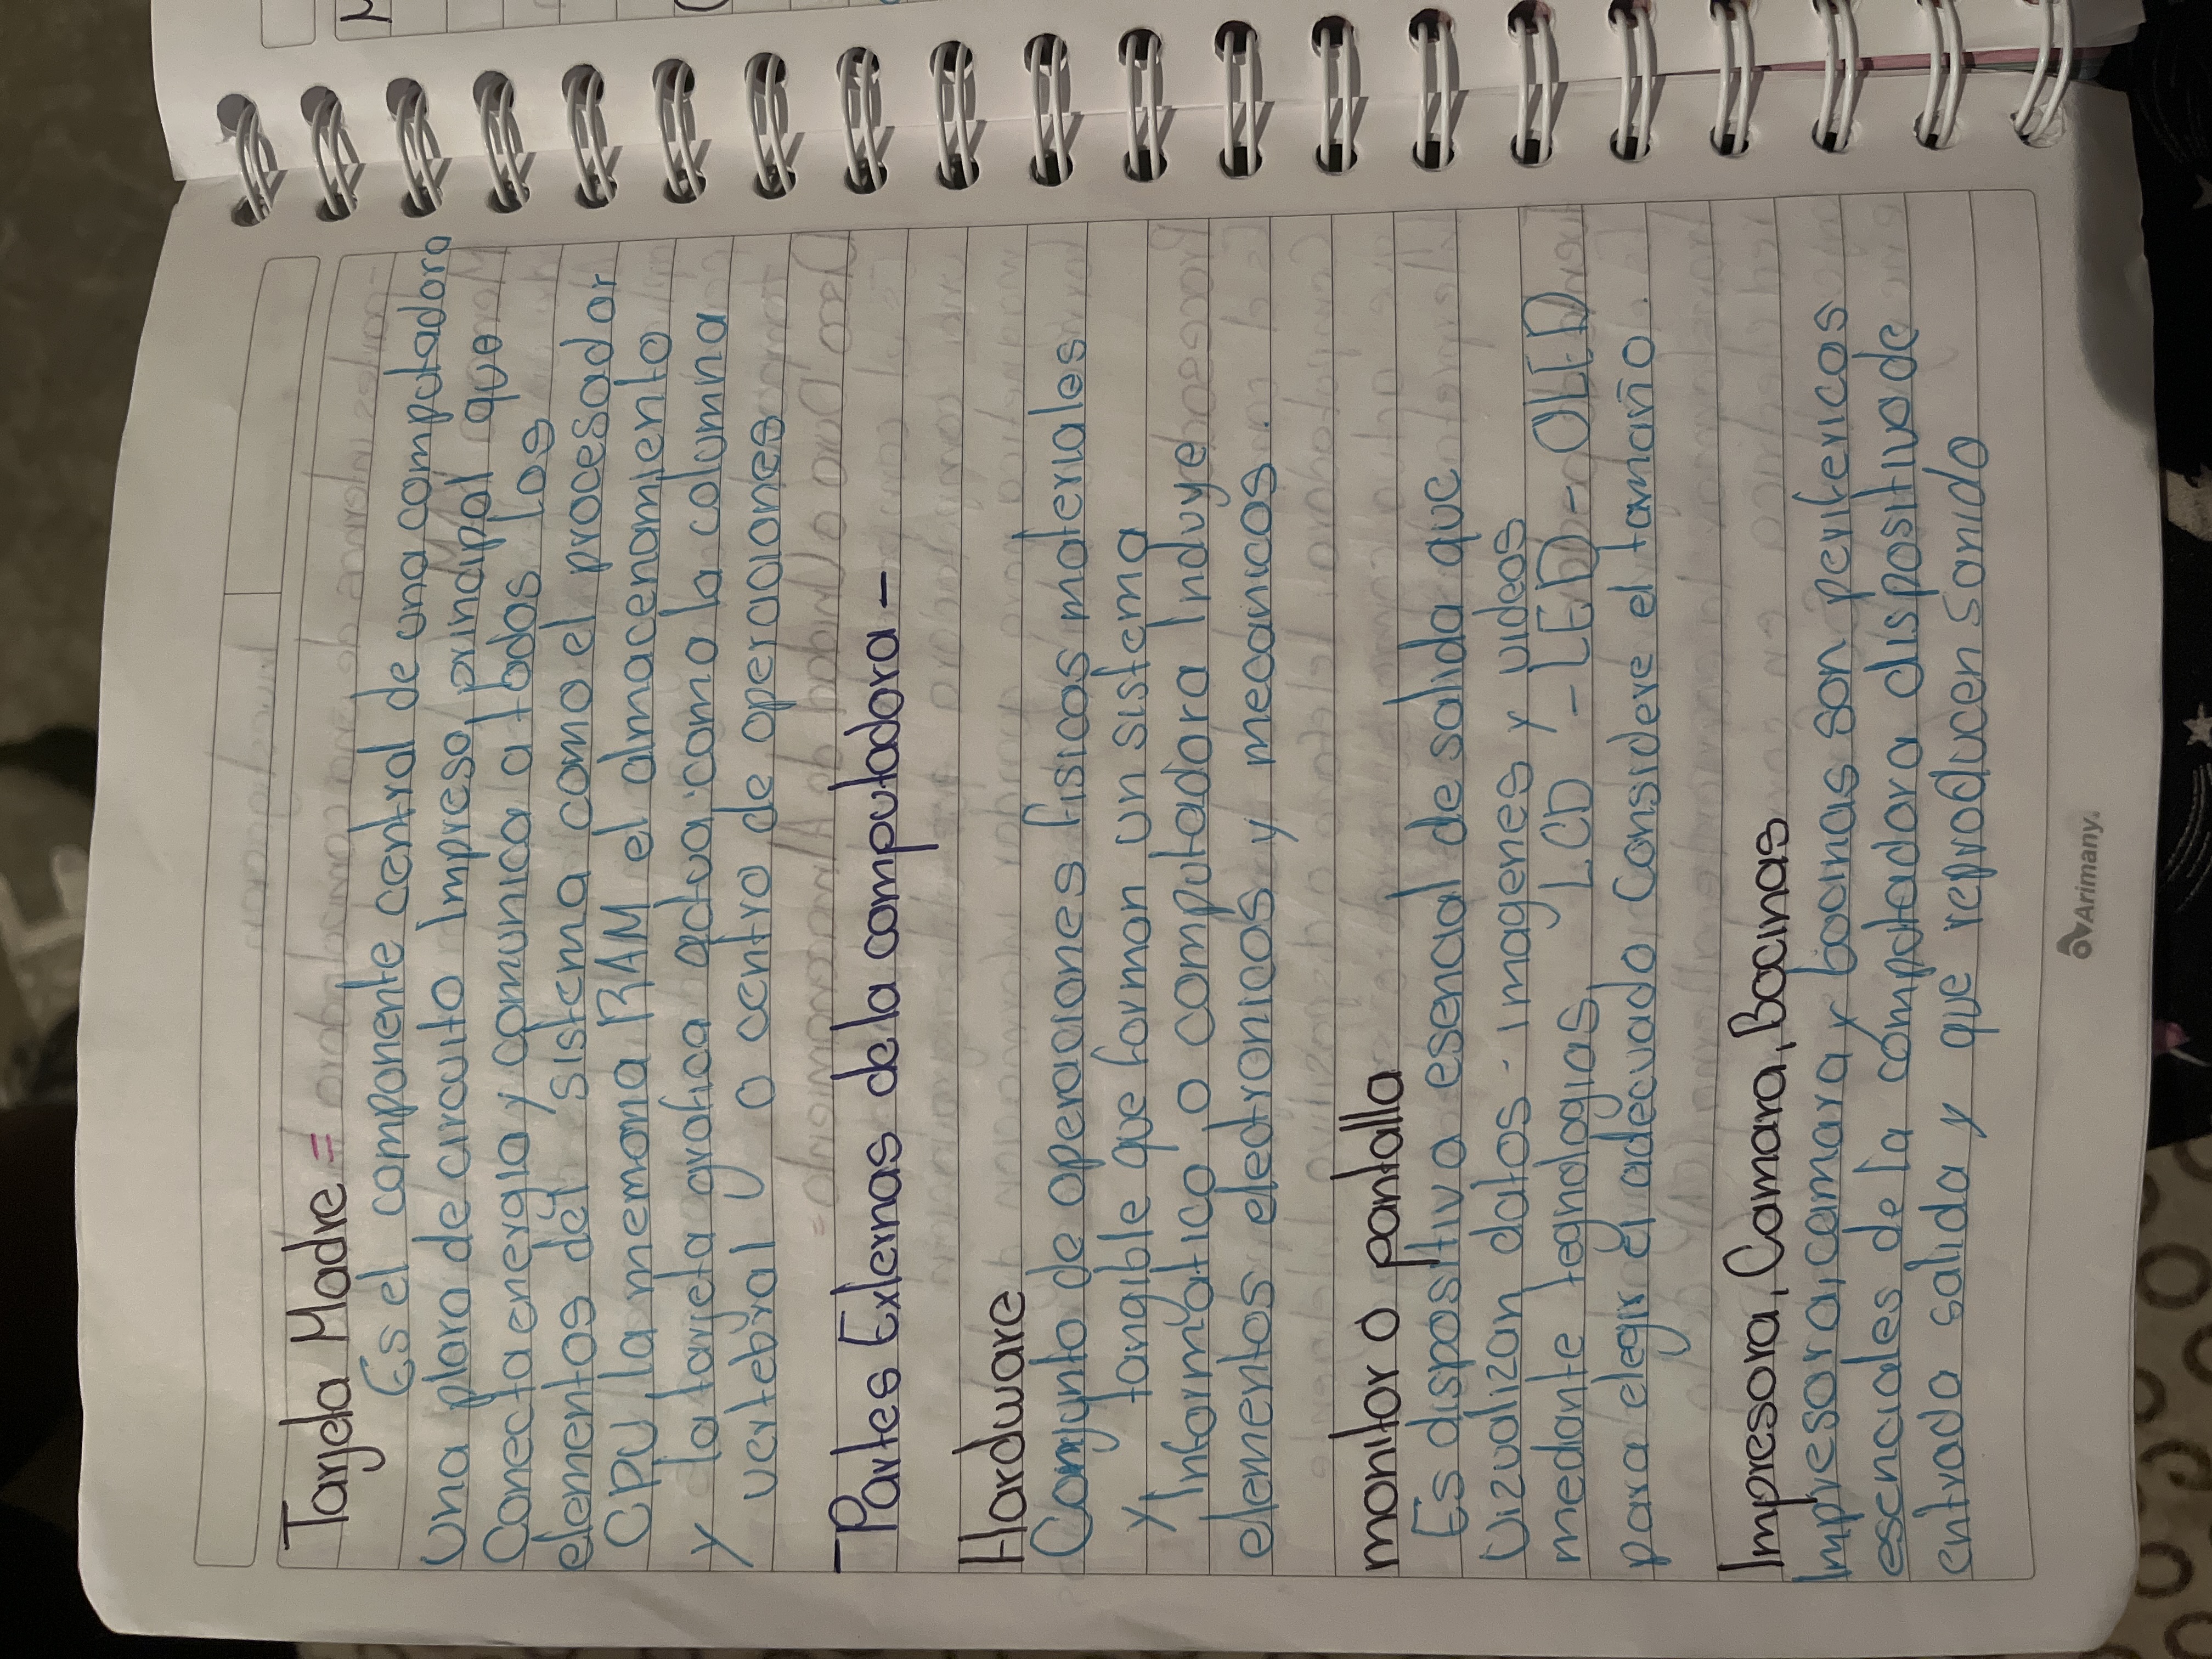 Tarjeta Madre =
Es el componente central de una computadora
una placa de circuito Impreso, principal que
Conecta energia y comunica a todos los
elementos del sistema como el procesador
CPU la memoria RAM el almacenamiento
y la tarjeta grafica actua como la columna
vertebral o centro de operaciones
- Partes Externas de la computadora -
Hardware
Conjunto de operaciones fisicos materiales
y tangible que forman un sistema
Informatico o computadora Incluye
elementos electronicos y mecanicos.
monitor o pantalla
Es dispositivo esencial de salida que
Vizualizan datos - imagenes y videos
mediante tegnologias, LCD - LED - OLED
para elegir el adecuado Considere el tamaño.
Impresora, Camara, Bocinas
Impresora, camara y bocinas son perifericos
esenciales de la computadora dispositivo de
entrada salida y que reproducen sonido
Arimany.